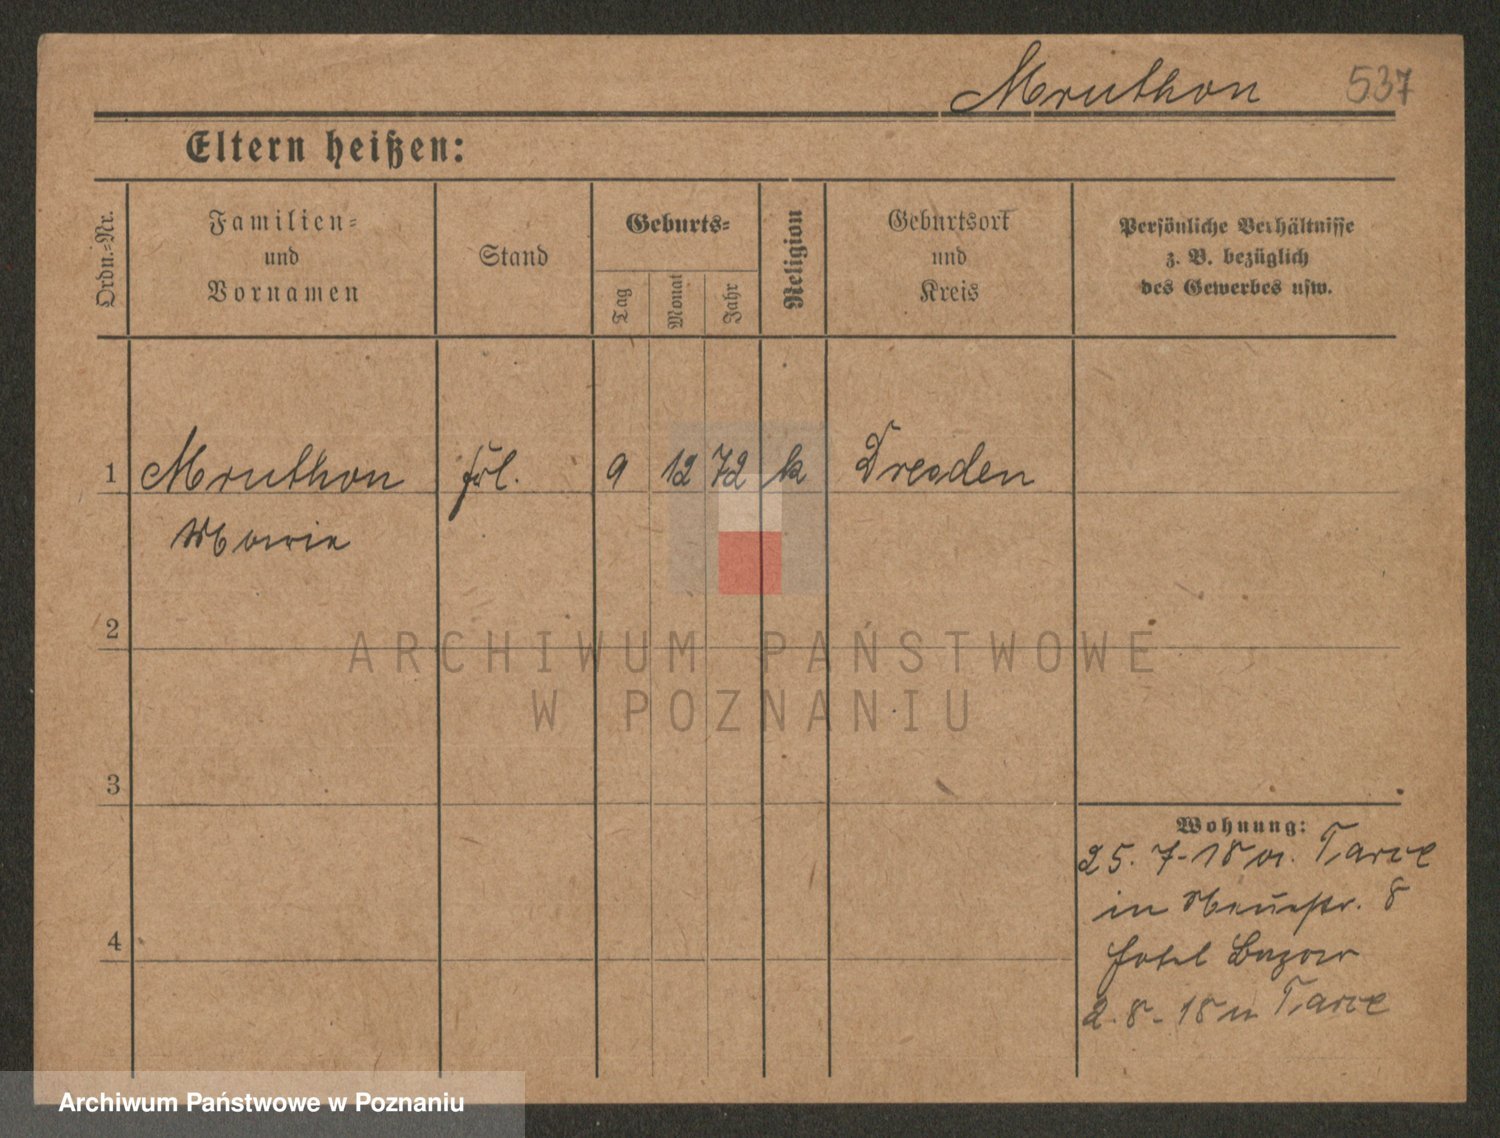 Mruthon 537
Eltern heißen:
Ordn.-Nr.
Familien-
und
Vornamen
Stand
Geburts-
Tag
Monat
Jahr
Religion
Geburtsort
und
Kreis
Persönliche Verhältnisse
z. B. bezüglich
des Gewerbes usw.
1 Mruthon frl. 9 12 72 k Dresden
Marie
2
3
4
Wohnung:
25. 7-18 a.
in Neuestr. 8
Hotel Bazar
2. 8-18 n
ARCHIWUM PAŃSTWOWE
W POZNANIU
Archiwum Państwowe w Poznaniu